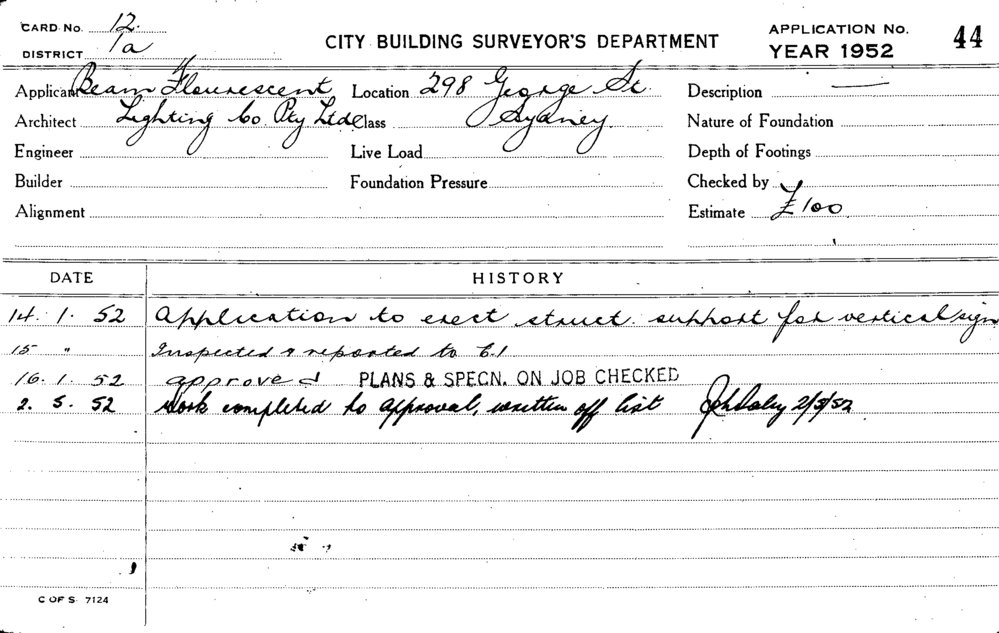 CARD No. 12. CITY BUILDING SURVEYOR'S DEPARTMENT APPLICATION No. 44
DISTRICT 1a YEAR 1952
Applicant Beam Flourescent Location 298 George St. Description —
Architect Lighting Co. Pty Ltd Class Sydney. Nature of Foundation
Engineer Live Load Depth of Footings
Builder Foundation Pressure Checked by
Alignment Estimate £100
DATE HISTORY
14. 1. 52 Application to erect struct. support for vertical sign
15 " Inspected & reported to C.I.
16. 1. 52 approved PLANS & SPECN. ON JOB CHECKED
2. 5. 52 Work completed to approval, written off list 2/5/52
C OF S 7124